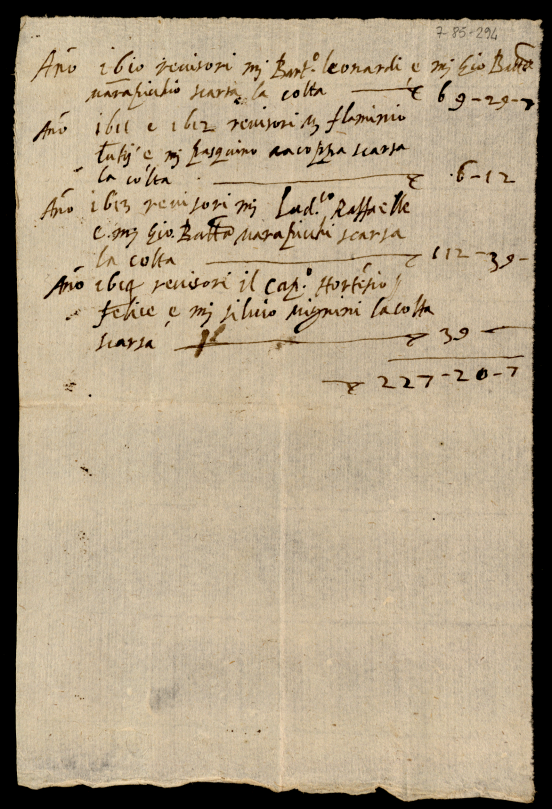 7-85-294
Año 1610 revisori mj Bart.º leonardi e mj Gio Batta
scarsa la colta 69-29-7
Año 1611 e 1612 revisori mj flaminio
e mj pasquino scarsa
la colta 6-12
Año 1613 revisori mj Lud.co Raffaelle
e mj Gio. Batta scarsa
la colta 112-39-
Año 1614 revisori il Cap.º Hortesio
felice e mj silvio vignini la colta
scarsa 39
227-20-7